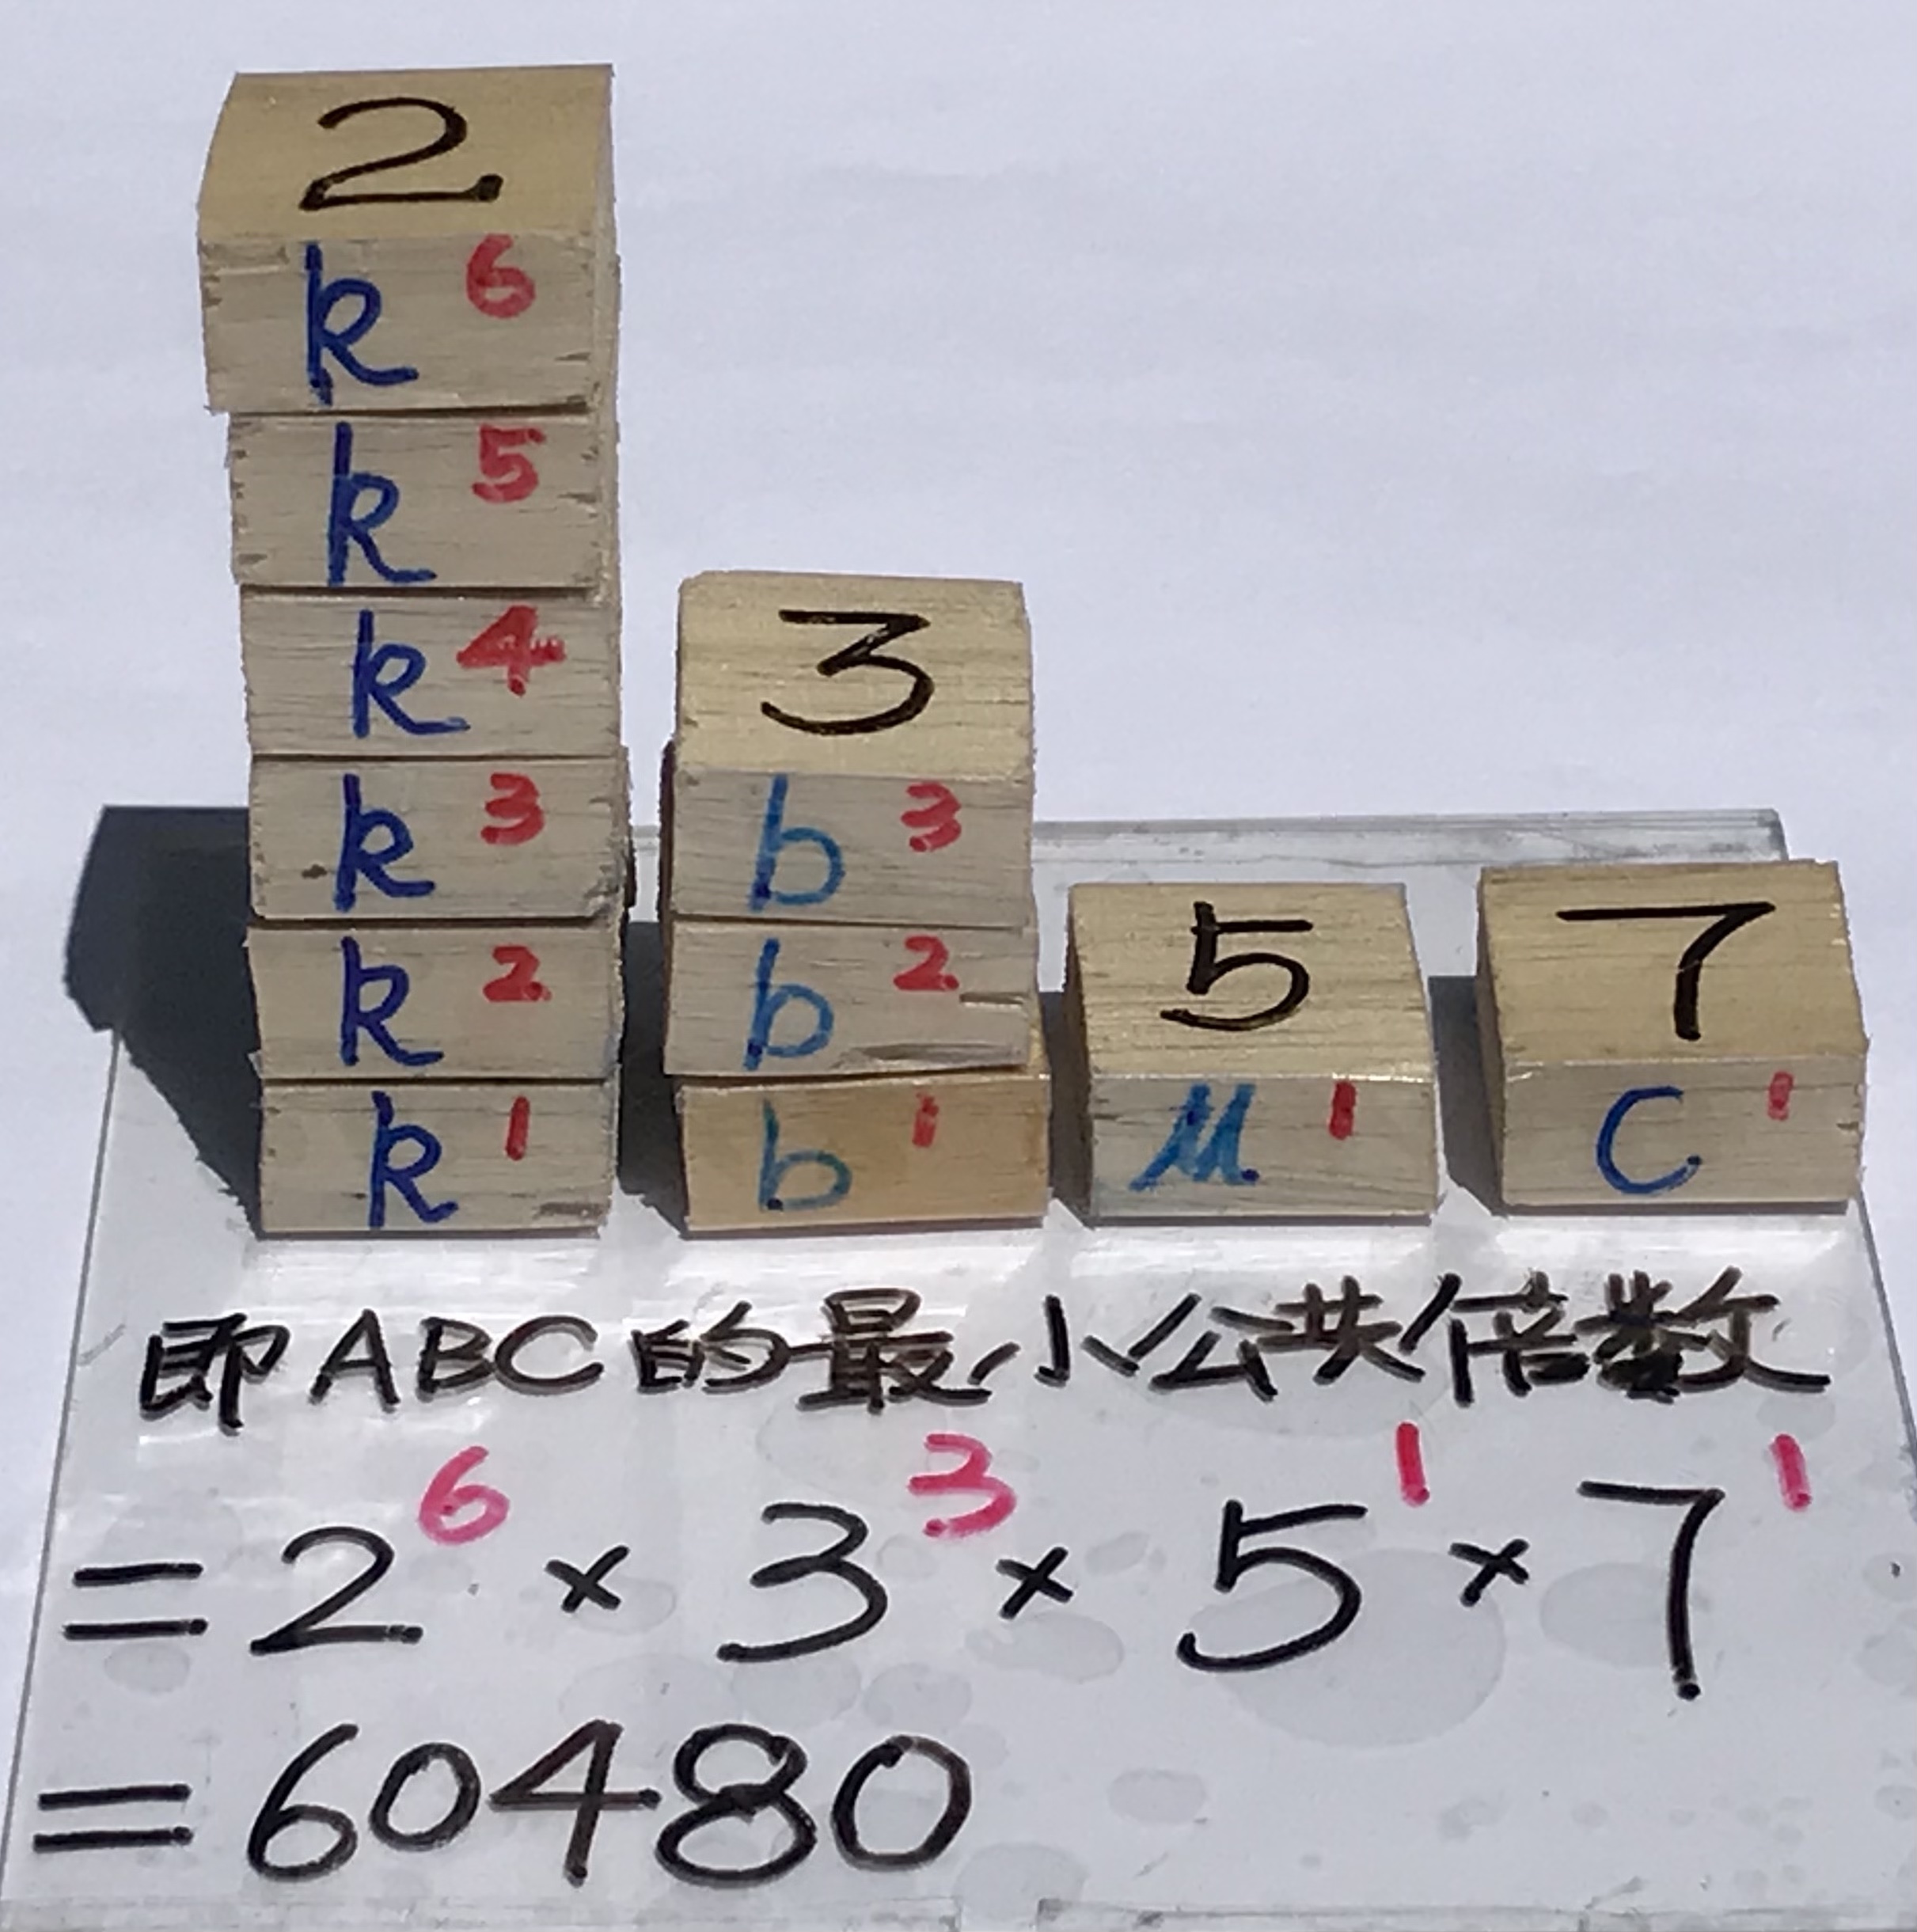 2
k⁶
k⁵
k⁴
k³
k²
k¹
3
b³
b²
b¹
5
μ¹
7
c¹
即ABC的最小公共倍数
=2⁶×3³×5¹×7¹
=60480